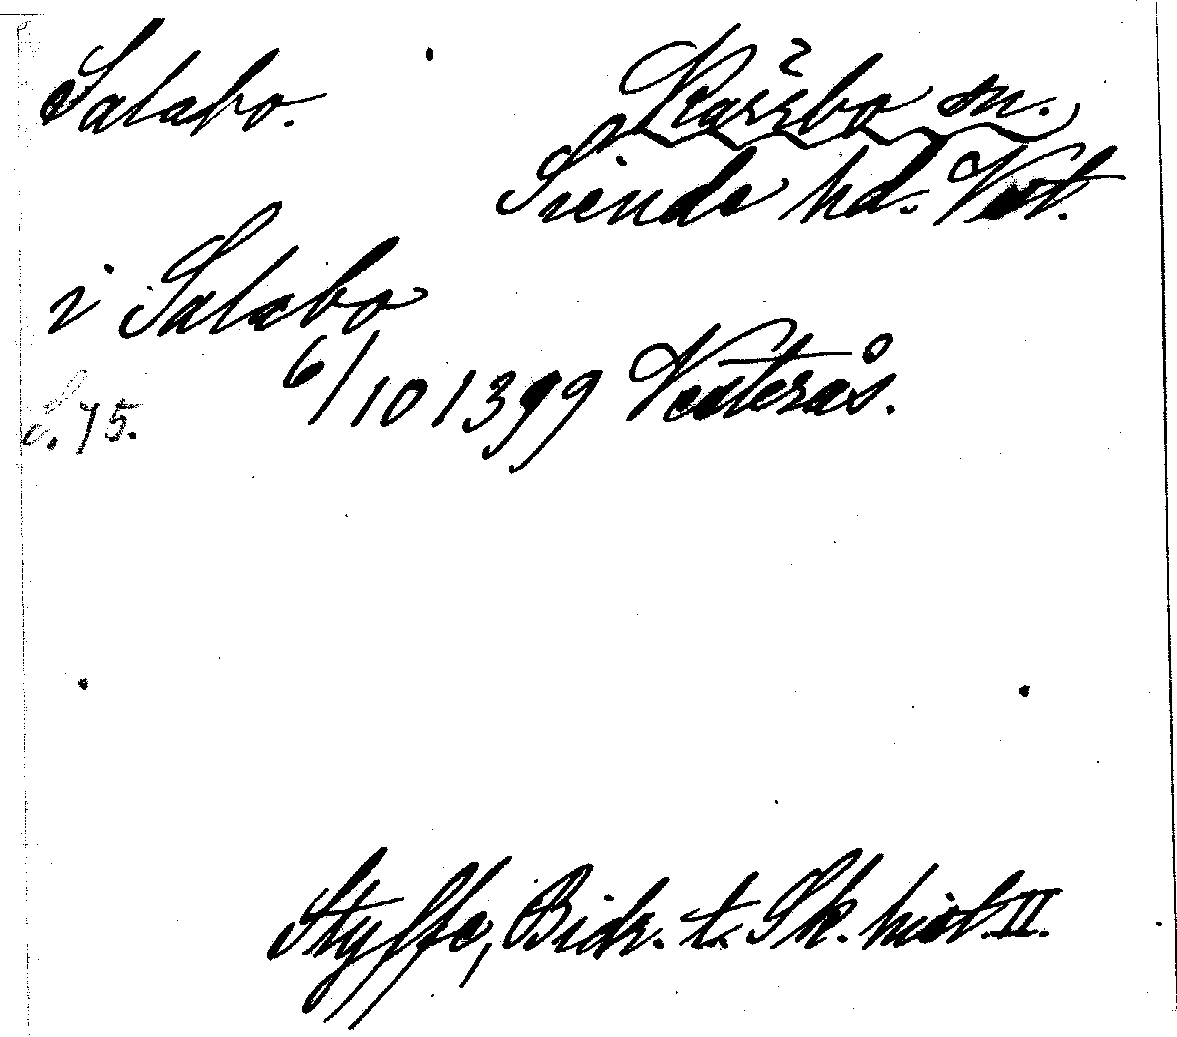 Salabo. Kärrbo sn.
Siende hd. Vest.
i Salabo
6/10 1399 Vesterås.
S. 75.
Styffe, Bidr. t. Sk. hist. II.